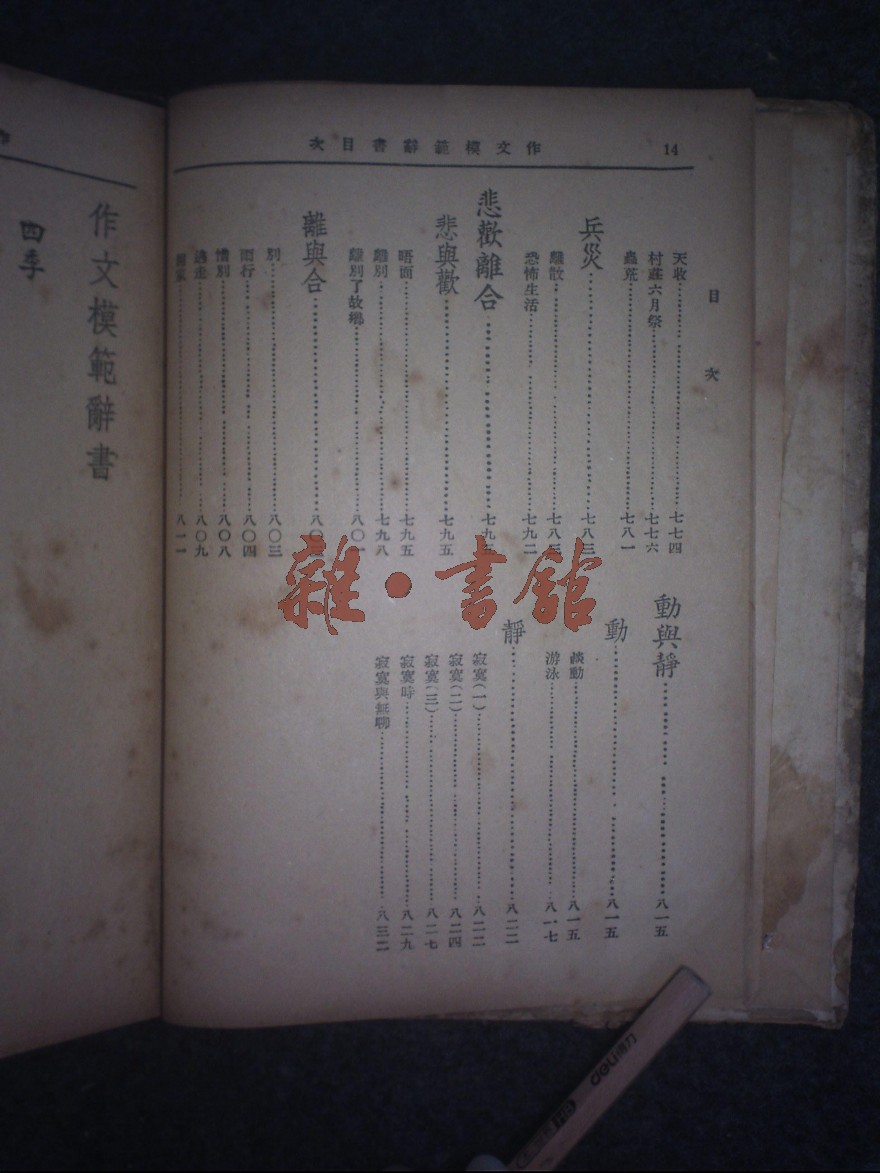 14 作文模範辭書目次
目次
天收 七七四
村莊六月祭 七七六
蟲荒 七八一
兵災 七八三
離散 七八三
恐怖生活 七九二
悲歡離合 七九五
悲與歡 七九五
晤面 七九五
離別 七九八
離別了故鄉 八〇一
離與合 八〇三
別 八〇三
而行 八〇四
惜別 八〇八
逃走 八〇九
八一一
動與靜 八一五
動 八一五
談動 八一五
游泳 八一七
靜 八二二
寂寞(一) 八二二
寂寞(二) 八二四
寂寞(三) 八二七
寂寞時 八二九
寂寞與無聊 八三二
作文模範辭書
四季
雜·書館
deli得力